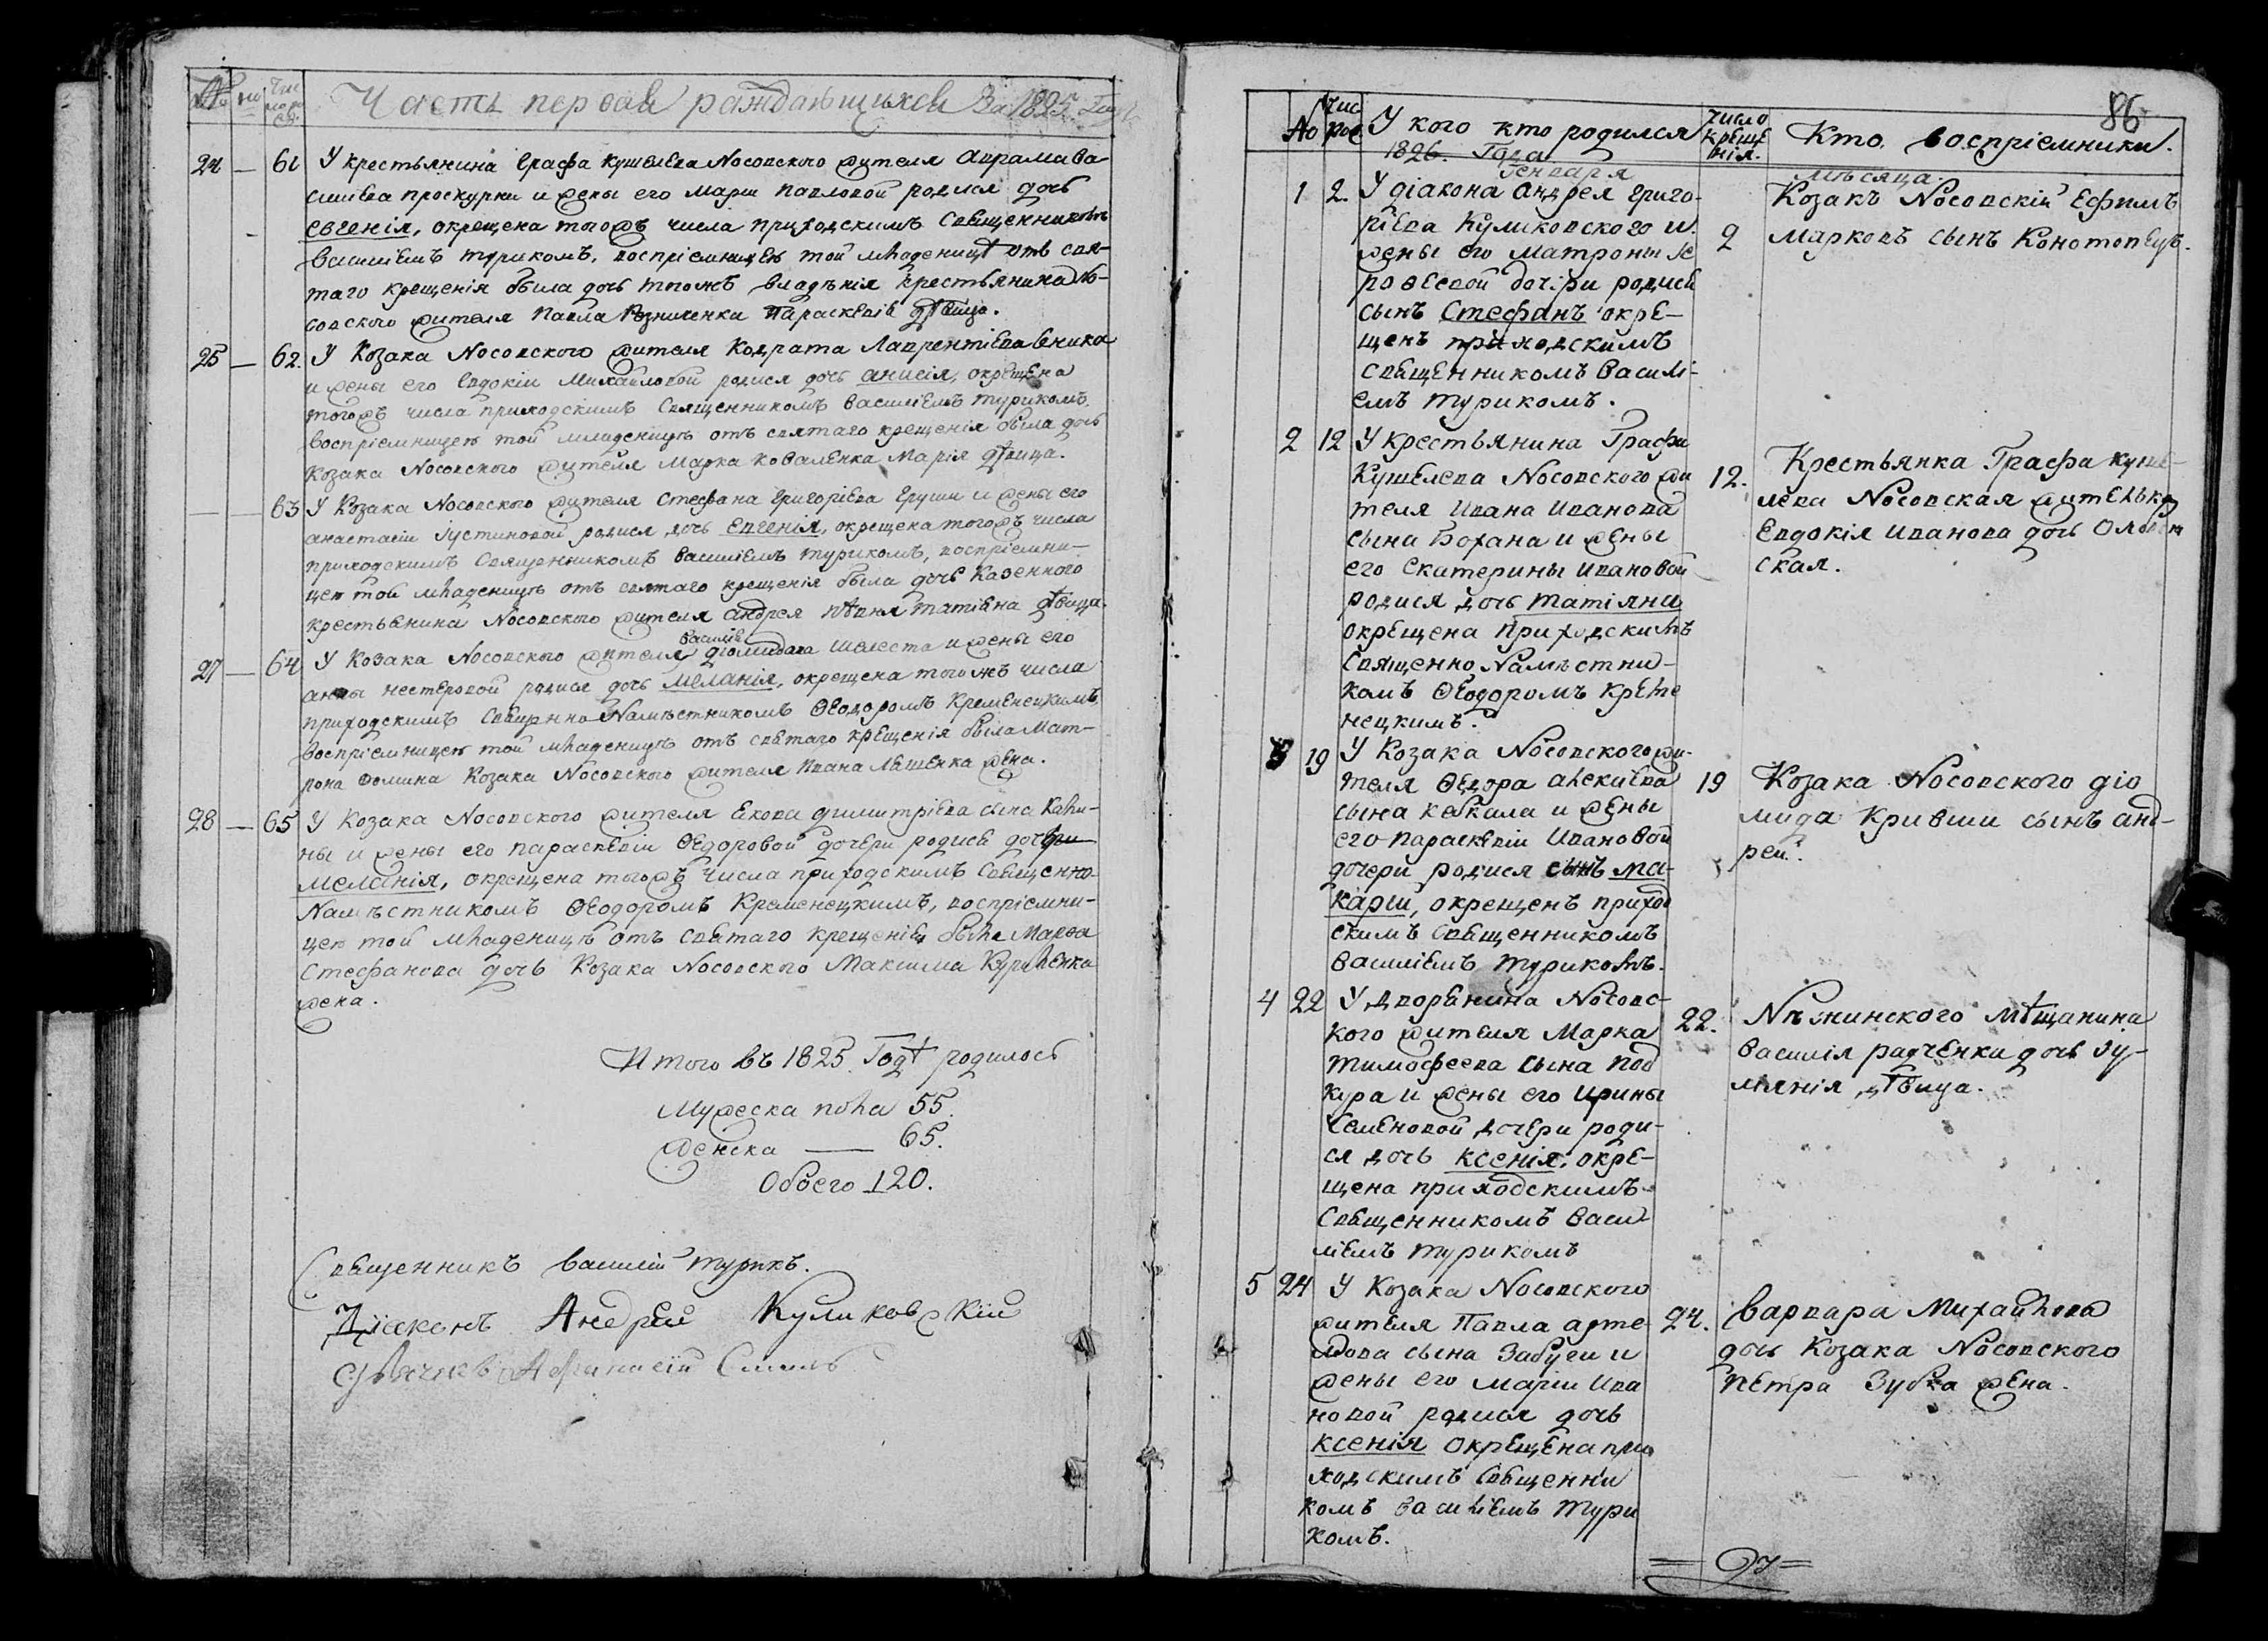 Часть первая раждающихся За 1825. Годъ
24 — 61 У крестьянина Графа Кушелева Носовского жителя Аврама Ва-
силіева проскурки и жены его Маріи Павловой родися дочь
Евгенія, окрещена тогожъ числа приходскимъ Священникомъ
Василіемъ Турикомъ, воспріемницею той младеницѣ отъ свя-
таго крещенія была дочь тогожъ владѣнія крестьянина Но-
совского жителя Павла Параскевія дѣвица.
25 — 62. У Козака Носовского жителя Кодрата Лаврентіева
и жены его Евдокіи Михайловой родися дочь Анисія, окрещена
тогожъ числа приходскимъ Священникомъ Василіемъ Турикомъ,
воспріемницею той младеницѣ отъ святаго крещенія была дочь
Козака Носовского жителя Марка Коваленка Марія дѣвица.
— — 63 У Козака Носовского жителя Стефана Григоріева Груши и жены его
Анастасіи Іустиновой родися дочь Евгенія, окрещена тогожъ числа
приходскимъ Священникомъ Василіемъ Турикомъ, воспріемни-
цею той младеницѣ отъ святаго крещенія была дочь Казенного
крестьянина Носовского жителя Андрея Татіана дѣвица.
27 — 64 У Козака Носовского жителя Василія Шелеста и жены его
Анны Нестеровой родися дочь Меланія, окрещена тогожъ числа
приходскимъ Священно Намѣстникомъ Ѳеодоромъ Кременецкимъ,
воспріемницею той младеницѣ отъ святаго крещенія была Мат-
рона Фомина Козака Носовского жителя Ивана Ляшенка жена.
28 — 65 У Козака Носовского жителя Якова Димитріева сына Кали-
ны и жены его Параскевіи Ѳедоровой дочери родися дочь
Меланія, окрещена тогожъ числа приходскимъ Священно
Намѣстникомъ Ѳеодоромъ Кременецкимъ, воспріемни-
цею той младеницѣ отъ святаго крещенія была Марѳа
Стефанова дочь Козака Носовского Максима Куриленка
жена.
Итого въ 1825. Годѣ родилось
Мужеска пола 55.
женска — 65.
Обоего 120.
Священникъ Василій Турикъ.
Діаконъ Андрей Куликовскій
Дьячекъ Афанасій
86
№ чис рож У кого кто родился число крещенія. Кто воспріемники.
1826. Года Генваря мѣсяца.
1 2. У діакона Андрея Григо-
ріева Куликовского и
жены его Матроны
дочери родися
сынъ Стефанъ окре-
щенъ приходскимъ
Священникомъ Василі-
емъ Турикомъ.
2 Козакъ Носовскій Ефимъ
Марковъ сынъ Конотопецъ.
2 12 У крестьянина Графа
Кушелева Носовского жи
теля Ивана Иванова
сына Бохана и жены
его Екатерины Ивановой
родися дочь Татіяна
окрещена приходскимъ
Священно Намѣстни-
комъ Ѳеодоромъ Креме
нецкимъ.
12. Крестьянка Графа Куше-
лева Носовская жителька
Евдокія Иванова дочь
ская.
3 19 У Козака Носовского жи-
теля Ѳедора Алексіева
сына Кабкала и жены
его Параскевіи Ивановой
дочери родися сынъ Ма-
карій, окрещенъ приход
скимъ Священникомъ
Василіемъ Турикомъ.
19 Козака Носовского Діо
мида Кривши сынъ Анд-
рей.
4 22 У дворянина Носовс-
кого жителя Марка
Тимофеева сына Под
кура и жены его Ирины
Семеновой дочери роди-
ся дочь Ксенія, окре-
щена приходскимъ
Священникомъ Васи
ліемъ Турикомъ
22. Нѣжинского Мѣщанина
Василія Радченки дочь Іу-
лянія дѣвица.
5 24 У Козака Носовского
жителя Павла Арте
мова сына Забуги и
жены его Маріи Ива
новой родися дочь
Ксенія окрещена при
ходскимъ Священни
комъ Василіемъ Тури
комъ.
24. Варвара Михайлова
дочь Козака Носовского
Петра Зубка жена.